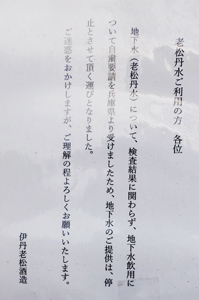 老松丹水ご利用の方　各位
地下水（老松丹水）について、検査結果に関わらず、地下水飲用に
ついて自粛要請を兵庫県より受けましたため、地下水のご提供は、停
止とさせて頂く運びとなりました。
ご迷惑をおかけしますが、ご理解の程よろしくお願いいたします。
伊丹老松酒造